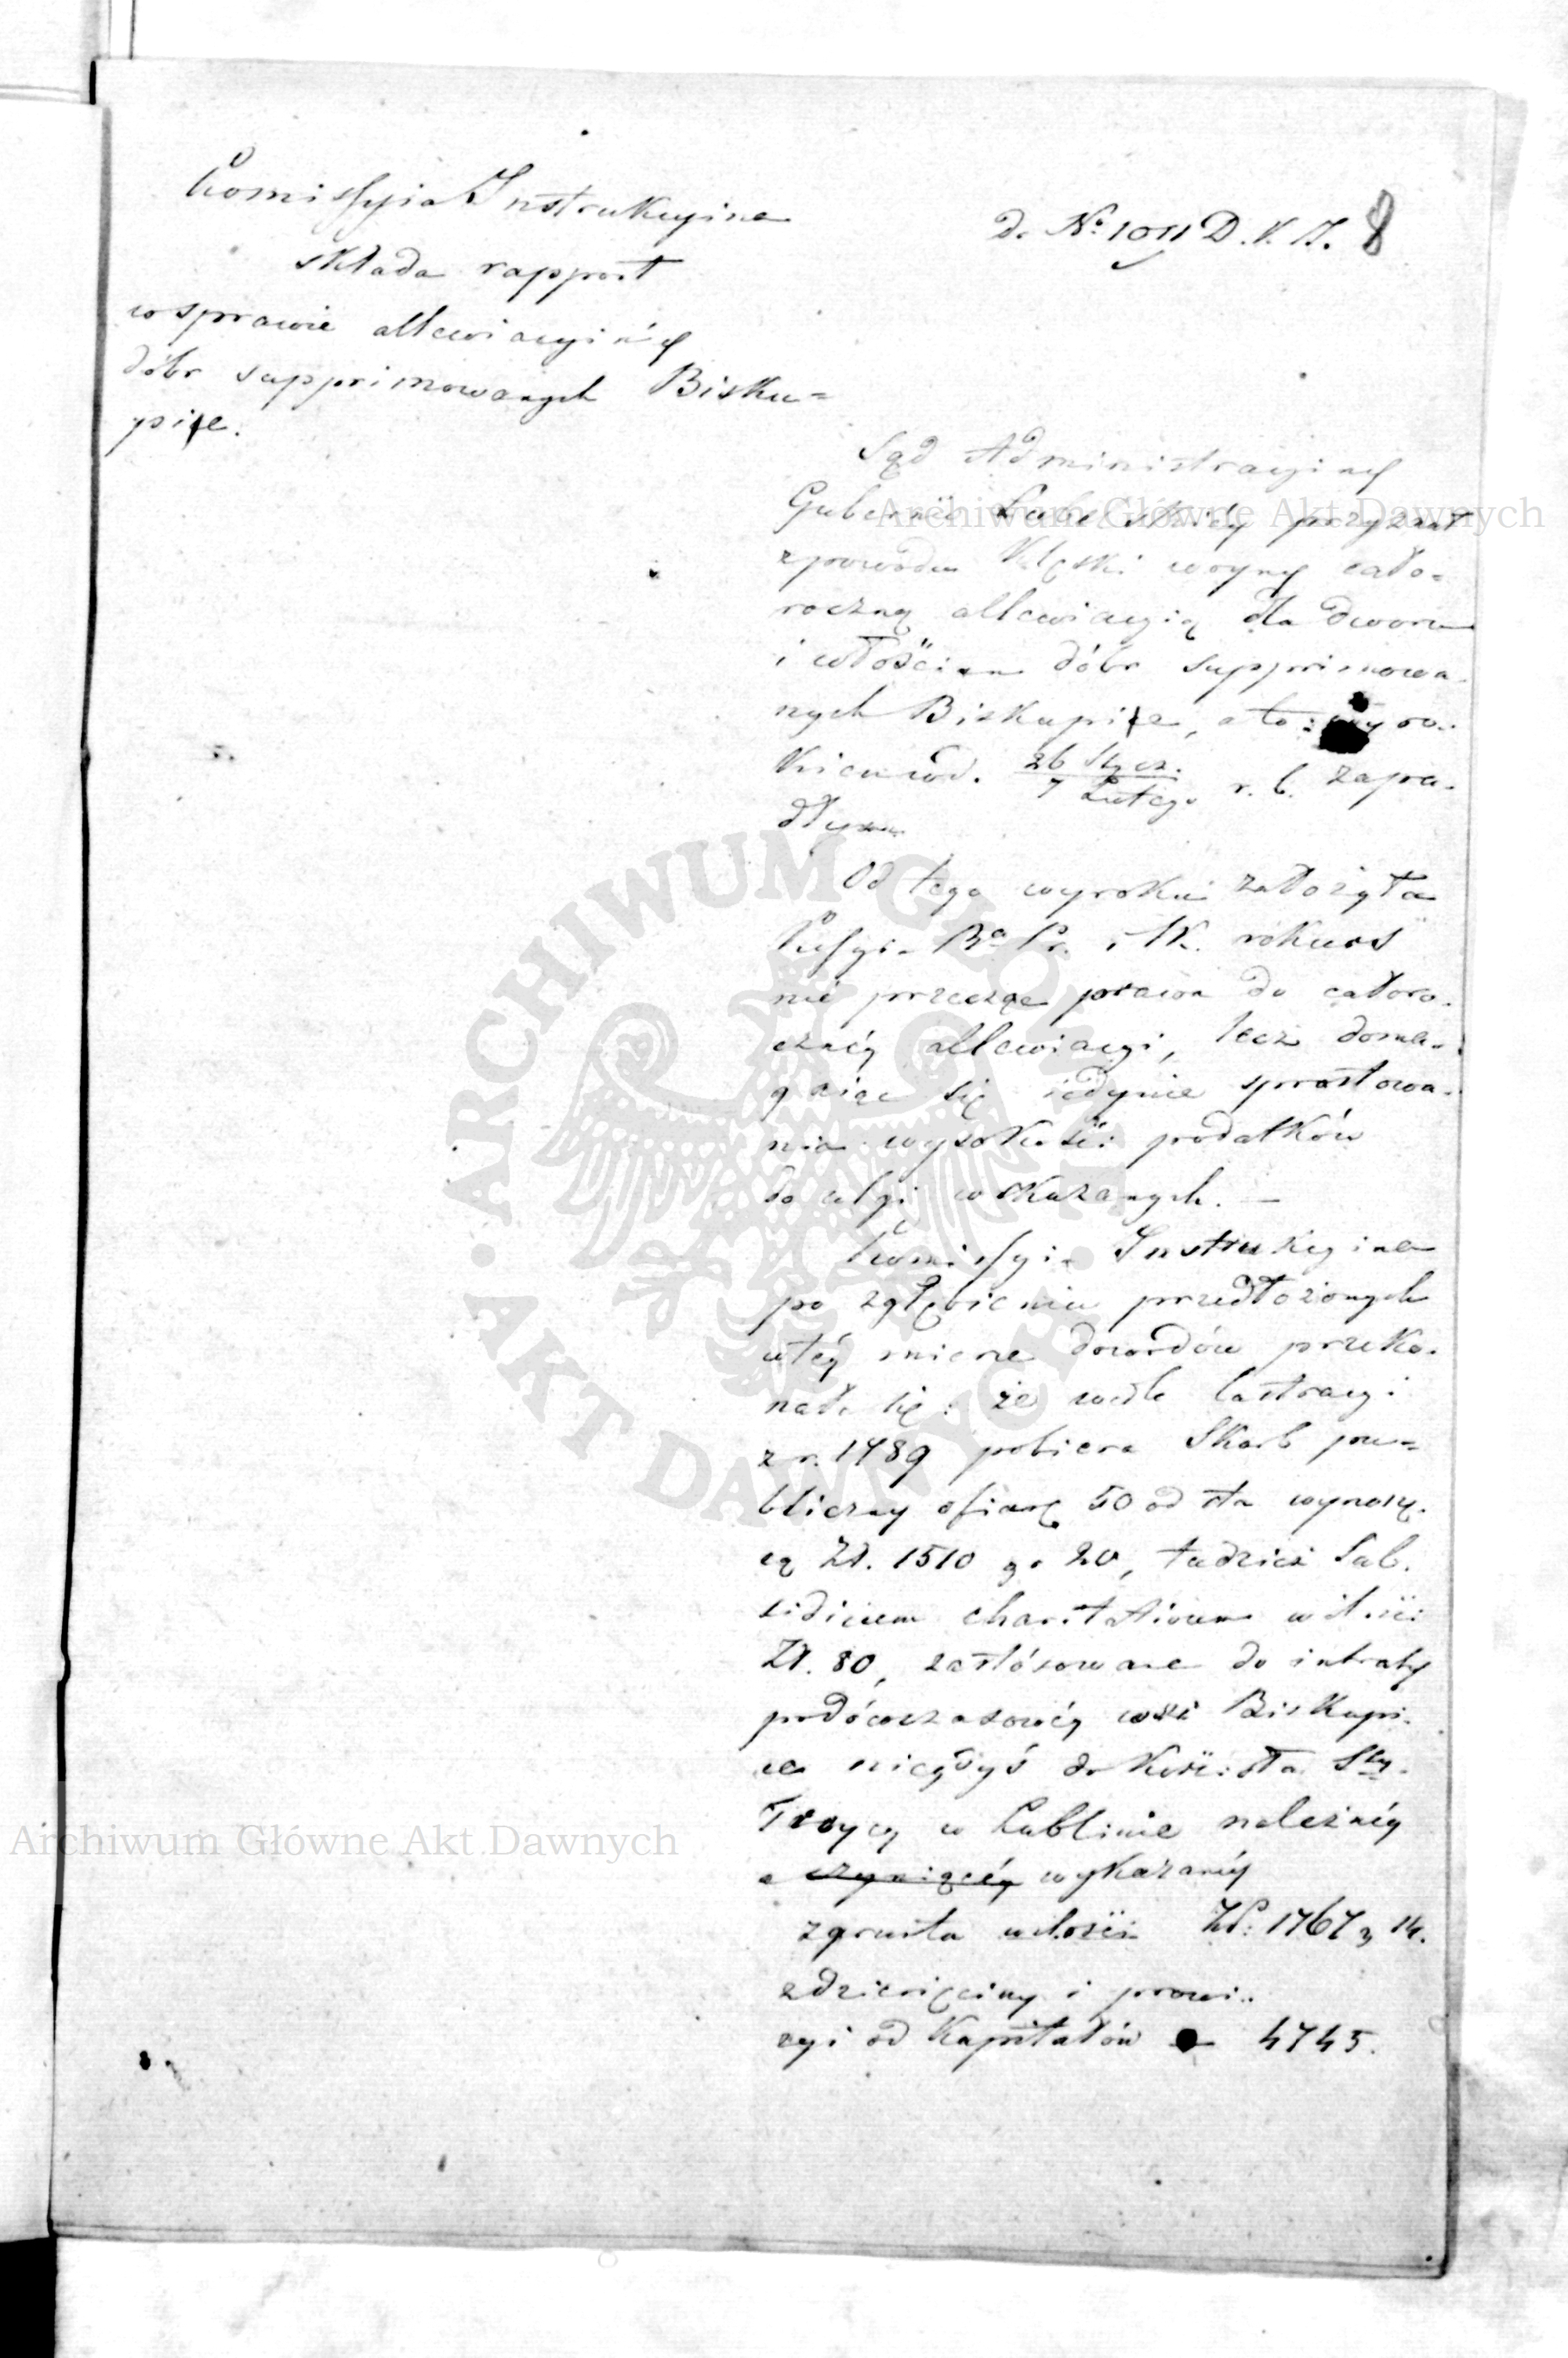 Komissyia Instrukcyina
składa rapport
w sprawie allewiacyinéy
dóbr supprimowanych Bisku=
pice.
do No 1011 D.K.I. 8
Sąd Administracyiny
Gubernii Lubelskiéy przyznał
z powodu klęski woyny cało-
roczną allewiacyią dla dworu
i włościan dóbr supprimowa-
nych Biskupice, a to: wyro-
kiem w d. 26 Stycz. / 7 Lutego r. b. zapa-
dłym
Od tego wyroku założyła
rekurs
nie przecząc prawa do całoro-
cznéy allewiacyi, lecz doma-
gaiąc się iedynie sprostowa-
nia wysokości podatków
do ulgi wskazanych. —
Komissyia Instrukcyina
po zgłębieniu przedłożonych
w téy mierze dowodów przeko-
nała się: że wedle lustracyi
z r. 1789 pobiera Skarb pu=
bliczny ofiarę 50 od sta wynoszą-
cą Zł. 1510 gr 20, tudzież Sub-
sidium charitativum w ilości
Zł. 80, zastósowane do intraty
podówczasowéy wsi Biskupi-
ce niegdyś do kościoła Stéy
Troycy w Lublinie należnéy
a czyniącéy wykazanéy
z gruntu w ilości Zł: 1767 gr 14.
z dziesięciny i prowi-
zyi od kapitałów — 4745.
Archiwum Główne Akt Dawnych
Archiwum Główne Akt Dawnych
ARCHIWUM GŁÓWNE
AKT DAWNYCH